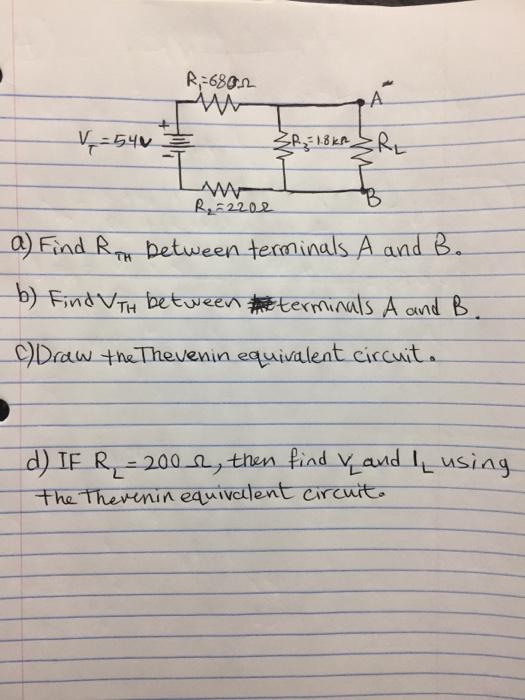 R₁=680Ω
A
+
V_T=54V
R₃=1.8kΩ
R_L
-
R₂=220Ω
B
a) Find R_TH between terminals A and B.
b) Find V_TH between terminals A and B.
c) Draw the Thevenin equivalent circuit.
d) IF R_L=200Ω, then find V_L and I_L using
the Thevenin equivalent circuit.